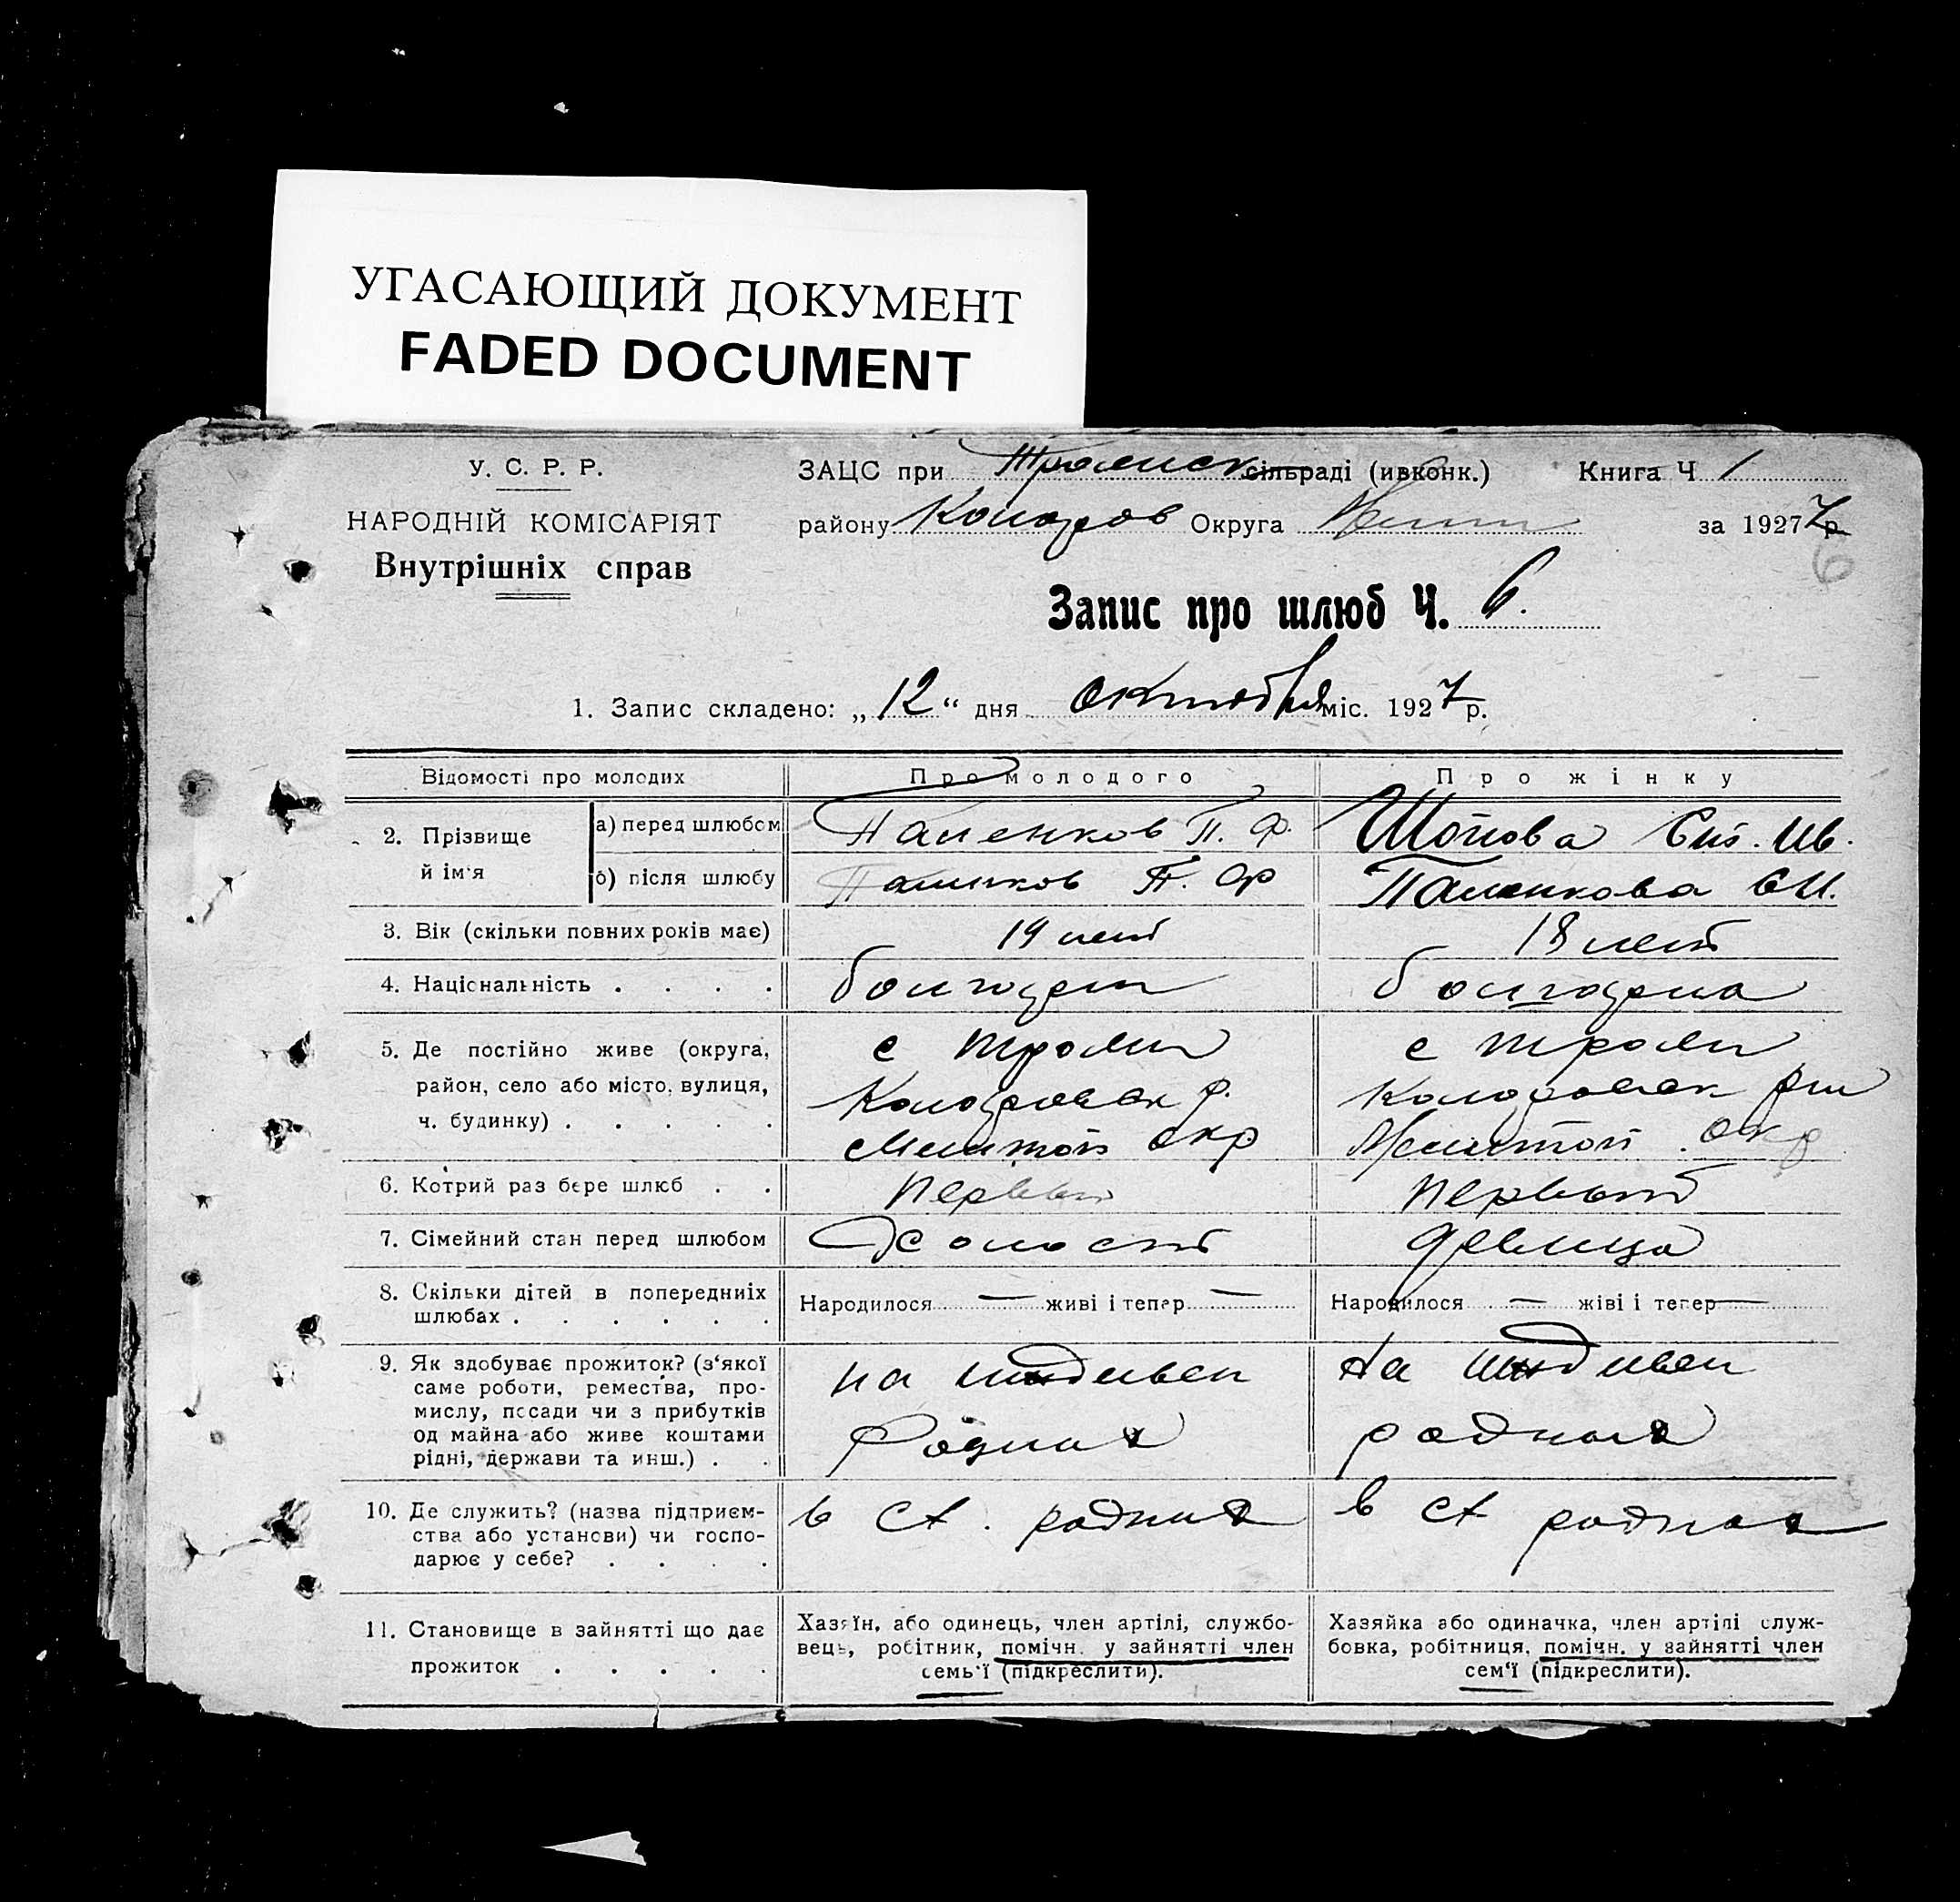 УГАСАЮЩИЙ ДОКУМЕНТ
FADED DOCUMENT
У. С. Р. Р.
НАРОДНІЙ КОМІСАРІЯТ
Внутрішніх справ
ЗАЦС при Троянск сільраді (ивконк.) Книга Ч 1
району Коларов Округа Мелит за 1927 7 р.
6
Запис про шлюб Ч. 6.
1. Запис складено: „12“ дня октября міс. 1927 р.
Відомості про молодих Про молодого Про жінку
2. Прізвище й ім'я
а) перед шлюбом Паленков П. Ф. Шопова Ев. Ив.
б) після шлюбу Паленков П. Ф Паленкова Е И.
3. Вік (скільки повних років має) 19 лет 18 лет
4. Національність . . . . болгарин болгарка
5. Де постійно живе (округа, район, село або місто, вулиця, ч. будинку) . . . . .
с Трояны
Коларовск р.
Мелитоп окр
с Трояны
Коларовск рн
Мелитоп. окр
6. Котрий раз бере шлюб . . первый первый
7. Сімейний стан перед шлюбом Холост девица
8. Скільки дітей в попередниіх шлюбах . . . . . .
Народилося — живі і тепер —
Народилося — жіві і тепер —
9. Як здобуває прожиток? (з'якої саме роботи, ремества, промислу, посади чи з прибутків од майна або живе коштами рідні, держави та инш.) . .
на иждивен
родных
на иждивен
родных
10. Де служить? (назва підприємства або установи) чи господарює у себе? . . . .
в с/х. родных
в с/х родных
11. Становище в зайнятті що дає прожиток . . . . .
Хазяїн, або одинець, член артілі, службовець, робітник, помічн. у зайнятті член семь'ї (підкреслити).
Хазяйка або одиначка, член артілі службовка, робітниця, помічн. у зайнятті член сем'ї (підкреслити).